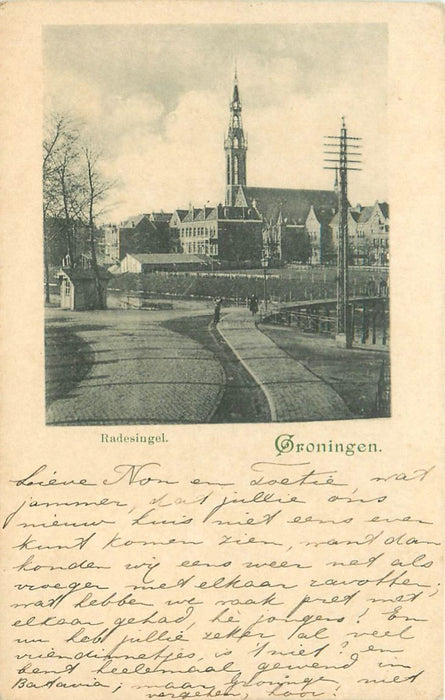 Radesingel.
Groningen.
Lieve Non en Zoetie, wat
jammer, dat jullie ons
nieuw huis niet eens even
kunt komen zien, want dan
konden wij eens weer net als
vroeger met elkaar ravotten,
wat hebben we vaak pret met
elkaar gehad he jongens! En
nu heb jullie zeker al veel
vriendinnetjes is 't niet? en
bent heelemaal gewend in
Batavia; maar Groninge niet
vergeten, hoor.